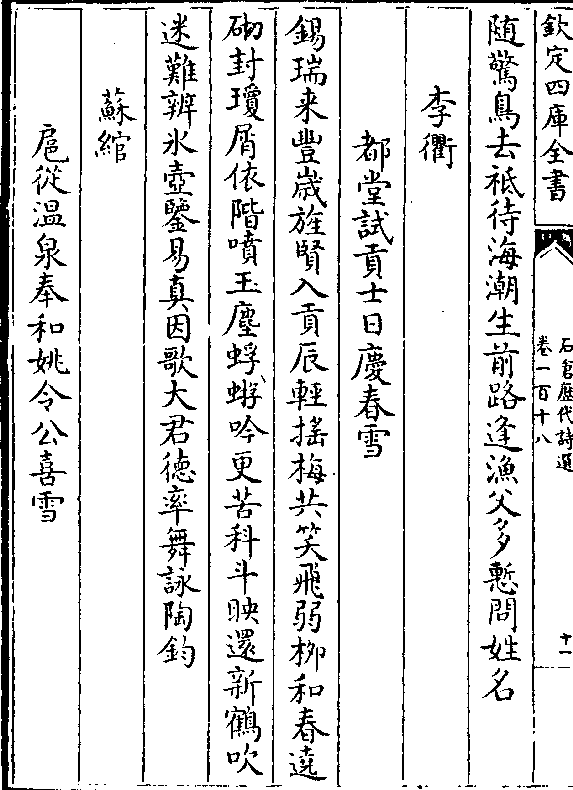 欽定四庫全書
石倉歷代詩選
卷一百十八
十一
随驚鳥去祗待海潮生前路逢漁父多慙問姓名
李衢
都堂試貢士日慶春雪
錫瑞来豐歳旌賢入貢辰輕摇梅共笑飛弱栁和春遶
砌封瓊屑依階噴玉塵蜉蝣吟更苦科斗映還新鶴吹
迷難辨氷壺鑒易真因歌大君徳率舞詠陶鈞
蘇綰
扈從温泉奉和姚令公喜雪